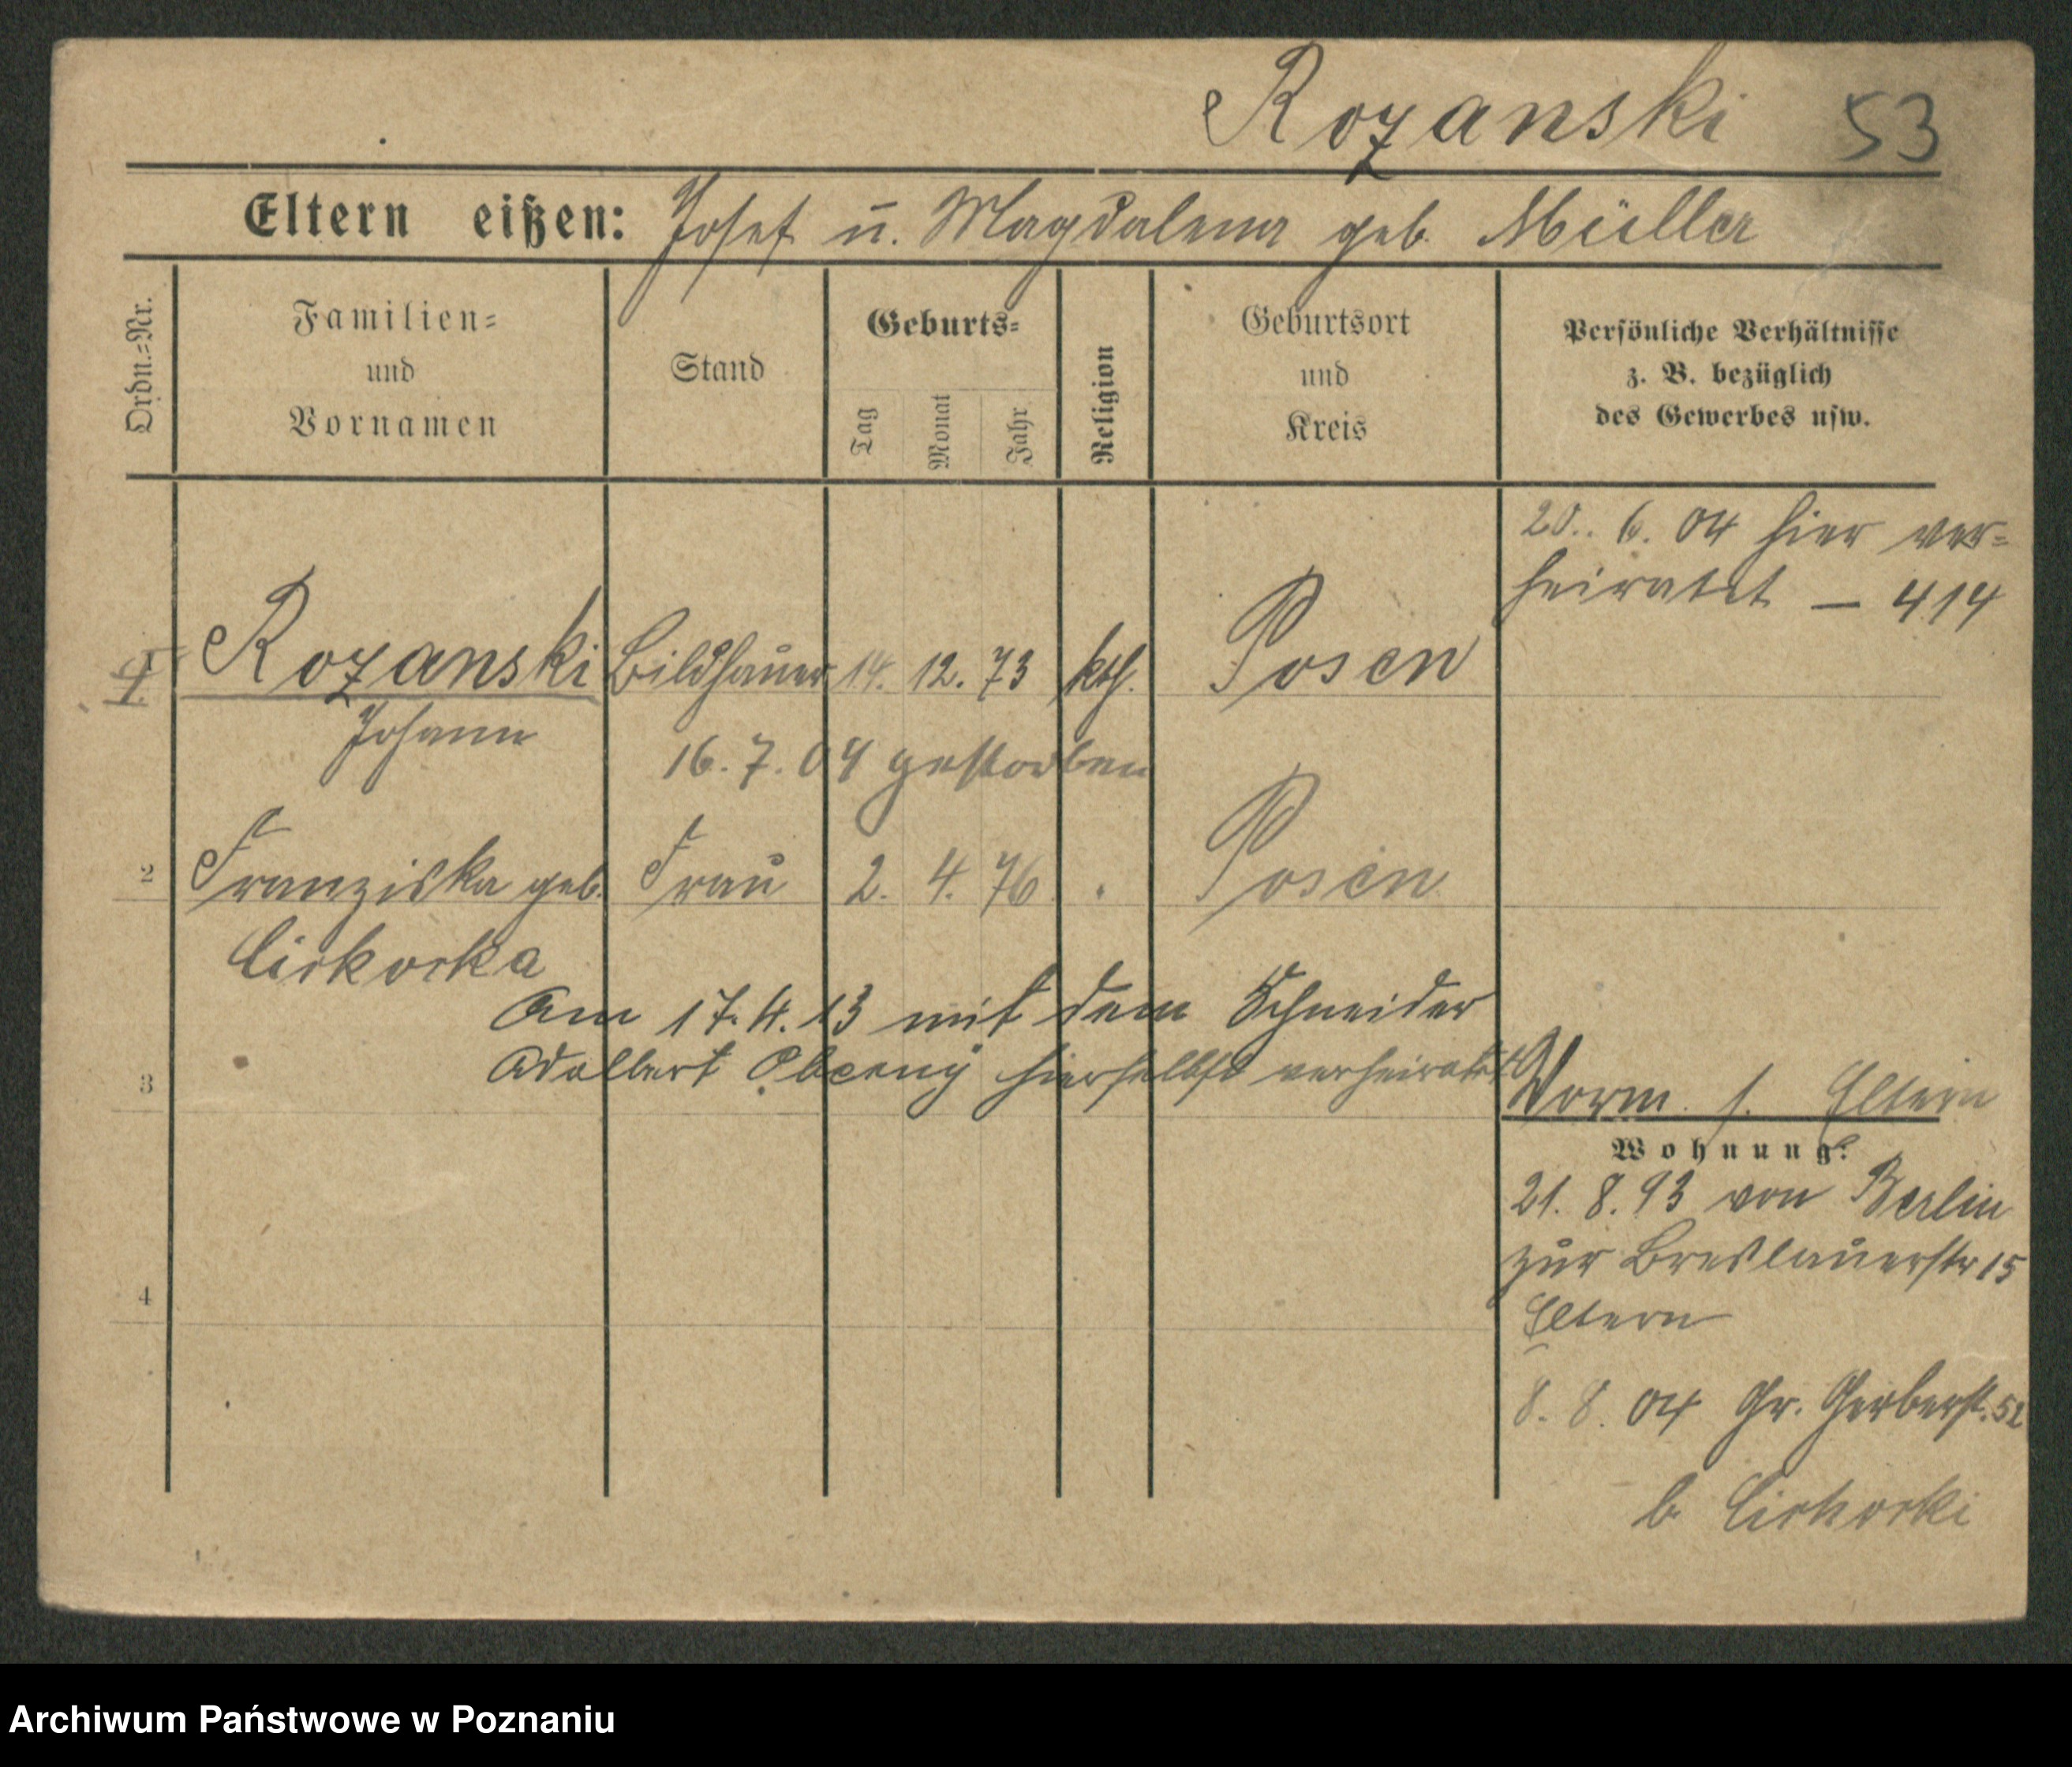 Rozanski 53
Eltern eißen: Josef u. Magdalena geb. Müller
Ordn.=Nr.
Familien=
und
Vornamen
Stand
Geburts=
Tag
Monat
Jahr
Religion
Geburtsort
und
Kreis
Persönliche Verhältnisse
z. B. bezüglich
des Gewerbes usw.
20. 6. 04 hier ver=
heiratet — 414
1 Rozanski Bildhauer 14. 12. 73 kth. Posen
Johann
16. 7. 04 gestorben
2 Franziska geb. Frau 2. 4. 76 Posen
Am 17. 4. 13 mit dem Schneider
Adalbert hierselbst verheiratet
3
Vorm. s. Eltern
Wohnung:
21. 8. 93 von Berlin
zur Breslauerstr 15
Eltern
4
8. 8. 04 Gr. Gerberst. 52
b.
Archiwum Państwowe w Poznaniu